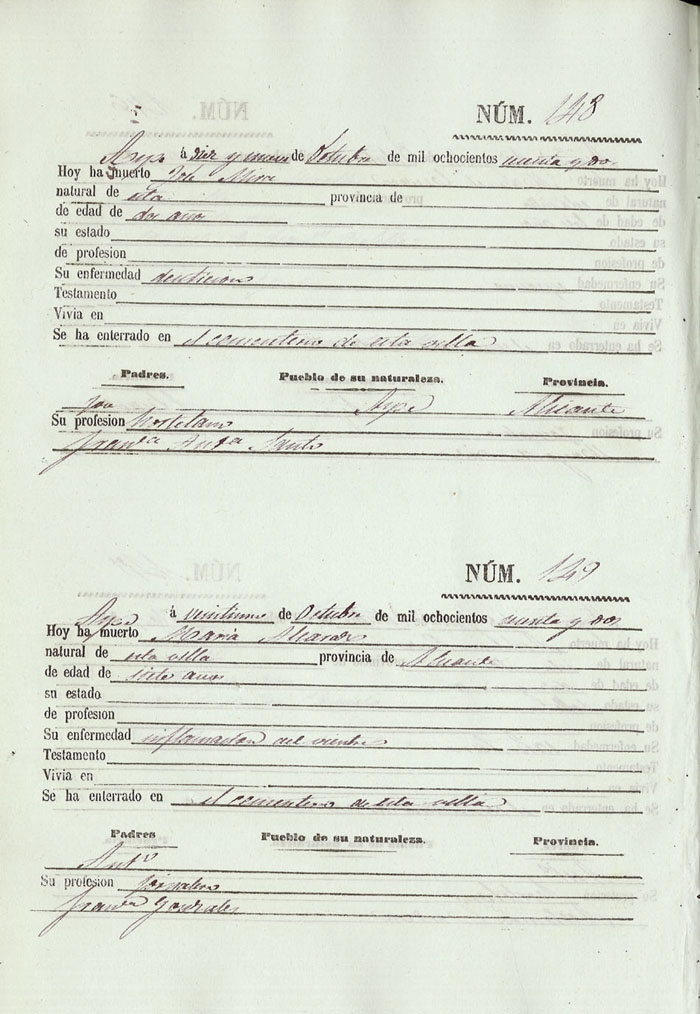 NÚM. 148
Aspe á diez y nueve de Octubre de mil ochocientos
Hoy ha muerto Mira
natural de esta provincia de
de edad de dos años
su estado
de profesion
Su enfermedad denticion
Testamento
Vivia en
Se ha enterrado en el cementerio de esta villa
Padres. Pueblo de su naturaleza. Provincia.
Jose Aspe Alicante
Su profesion hortelano
Franca
NÚM. 149
Aspe á veintiuno de Octubre de mil ochocientos
Hoy ha muerto Maria
natural de esta villa provincia de Alicante
de edad de siete años
su estado
de profesion
Su enfermedad inflamacion del vientre
Testamento
Vivia en
Se ha enterrado en el cementerio de esta villa
Padres Pueblo de su naturaleza. Provincia.
Anto
Su profesion jornalero
Franca Gonzales